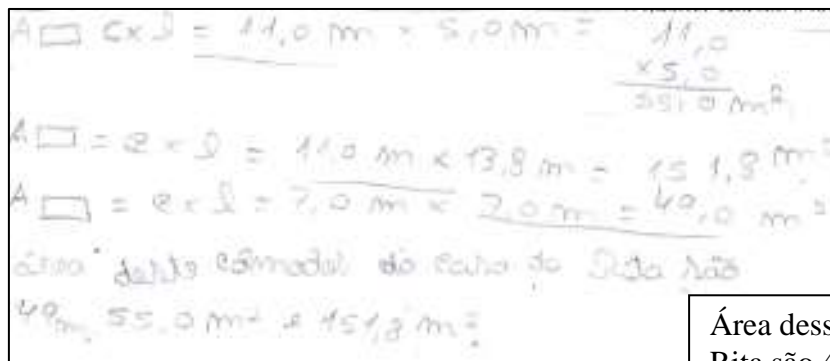 A▭ c x l = 11,0 m x 5,0 m = 11,0
x 5,0
55,0 m²
A▭ = c x l = 11,0 m x 13,8 m = 151,8 m²
A▭ = c x l = 7,0 m x 7,0 m = 49,0 m²
área deste cômodos da casa da Rita são
49m, 55,0 m² e 151,8 m²
Área dess
Rita são